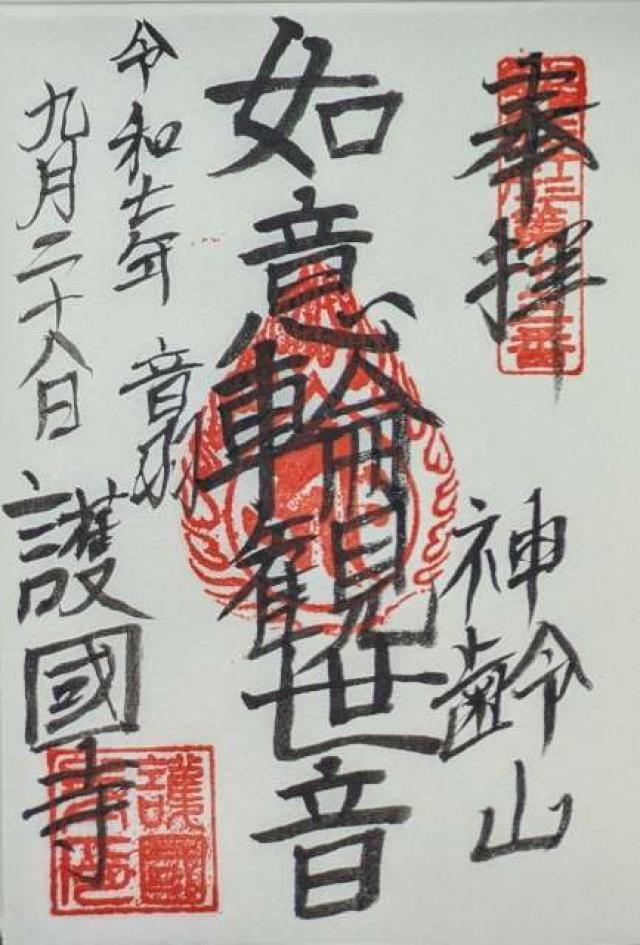 奉拝
神齢山
如意輪観世音
令和七年
九月二十八日
音羽
護國寺